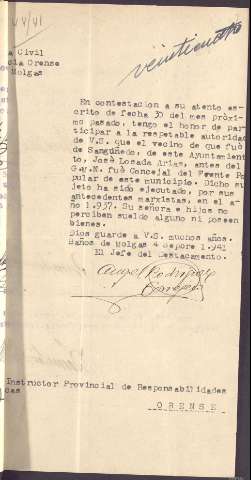 a Civil
cia Orense
Molgas
En contestacion a su atento es-
crito de fecha 30 del mes próxi-
mo pasado, tengo el honor de par-
ticipar a la respetable autoridad
de V.S. que el vecino de que fué
de Sanguñedo, de este Ayuntamien-
to, José Losada Arias, antes del
G.M.N. fué Concejal del Frente Po-
pular de este municipio. Dicho su-
jeto ha sido ejecutado, por sus
antecedentes marxistas, en el a-
ño 1.937. Su señora e hijos no
perciben sueldo alguno ni poseen
bienes.
Dios guarde a V.S. muchos años.
Baños de Molgas 4 1.941
El Jefe del Destacamento.
Angel Rodriguez
Instructor Provincial de Responsabilidades
cas
ORENSE